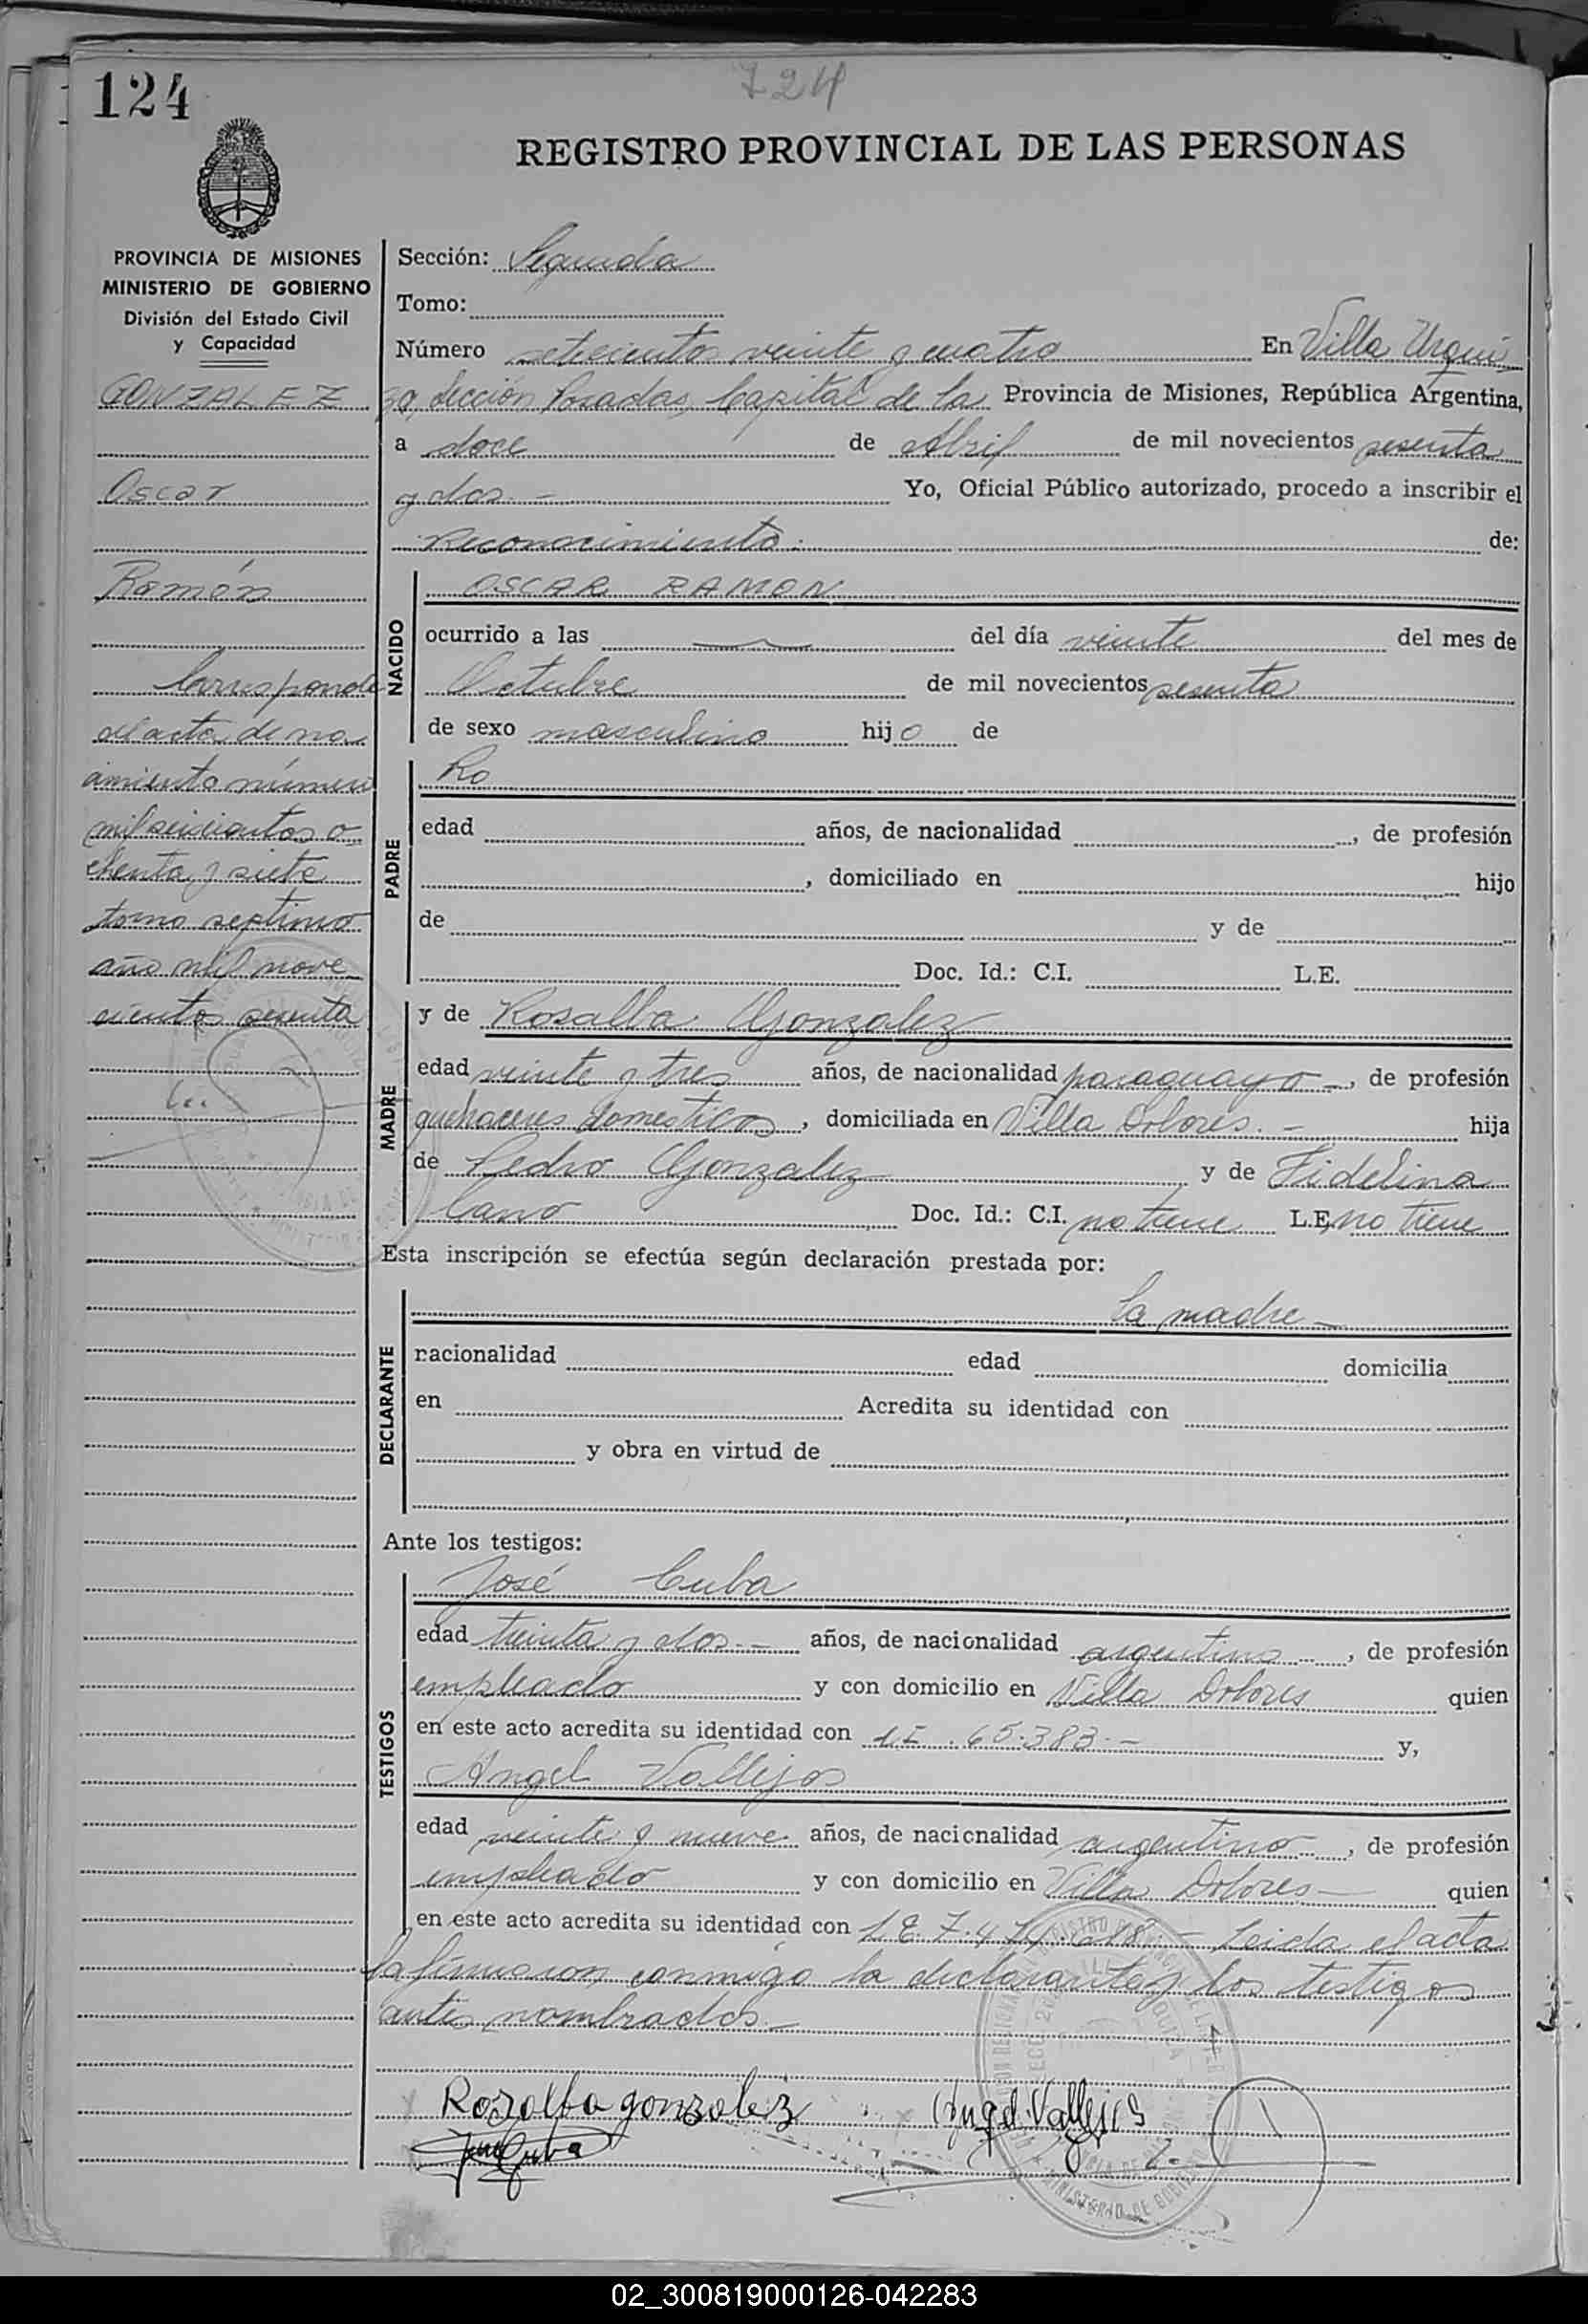 124
724
REGISTRO PROVINCIAL DE LAS PERSONAS
PROVINCIA DE MISIONES
MINISTERIO DE GOBIERNO
División del Estado Civil
y Capacidad
GONZALEZ
Oscar
Ramón
Corresponde
al acta de na
cimiento número
mil seiscientos o
chenta y siete
tomo septimo
año mil nove
cientos sesenta
Sección: Segunda
Tomo:
Número setecientos veinte y cuatro En Villa Urqui
za, Sección Posadas, Capital de la Provincia de Misiones, República Argentina,
a doce de Abril de mil novecientos sesenta
y dos.- Yo, Oficial Público autorizado, procedo a inscribir el
reconocimiento. de:
NACIDO
OSCAR RAMON
ocurrido a las del día veinte del mes de
Octubre de mil novecientos sesenta
de sexo masculino hijo de
PADRE
Ro
edad años, de nacionalidad , de profesión
, domiciliado en hijo
de y de
Doc. Id.: C.I. L.E.
MADRE
y de Rosalba Gonzalez
edad veinte y tres años, de nacionalidad paraguaya -, de profesión
quehaceres domesticos, domiciliada en Villa Dolores.- hija
de Pedro Gonzalez y de Fidelina
Cano Doc. Id.: C.I. no tiene L.E. no tiene
Esta inscripción se efectúa según declaración prestada por:
DECLARANTE
La madre -
nacionalidad edad domicilia
en Acredita su identidad con
y obra en virtud de
Ante los testigos:
TESTIGOS
José Cuba
edad treinta y dos.- años, de nacionalidad argentino , de profesión
empleado y con domicilio en Villa Dolores quien
en este acto acredita su identidad con 65.383.- y,
Angel Vallejos
edad veinte y nueve años, de nacionalidad argentino , de profesión
empleado y con domicilio en Villa Dolores - quien
en este acto acredita su identidad con L.E. 7.474. - Leida el acta
la firmaron conmigo la declarante y los testigos
antes nombrados.-
Rozalba gonzalez Angel Vallejos
José Cuba
02_300819000126-042283